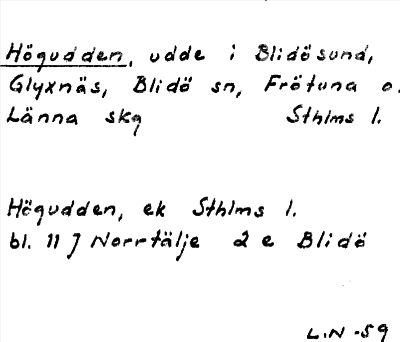 Högudden, udde i Blidösund,
Glyxnäs, Blidö sn, Frötuna o.
Länna skg Sthlms l.
Högudden, ek Sthlms l.
bl. 11 J Norrtälje 2 e Blidö
L.N -59